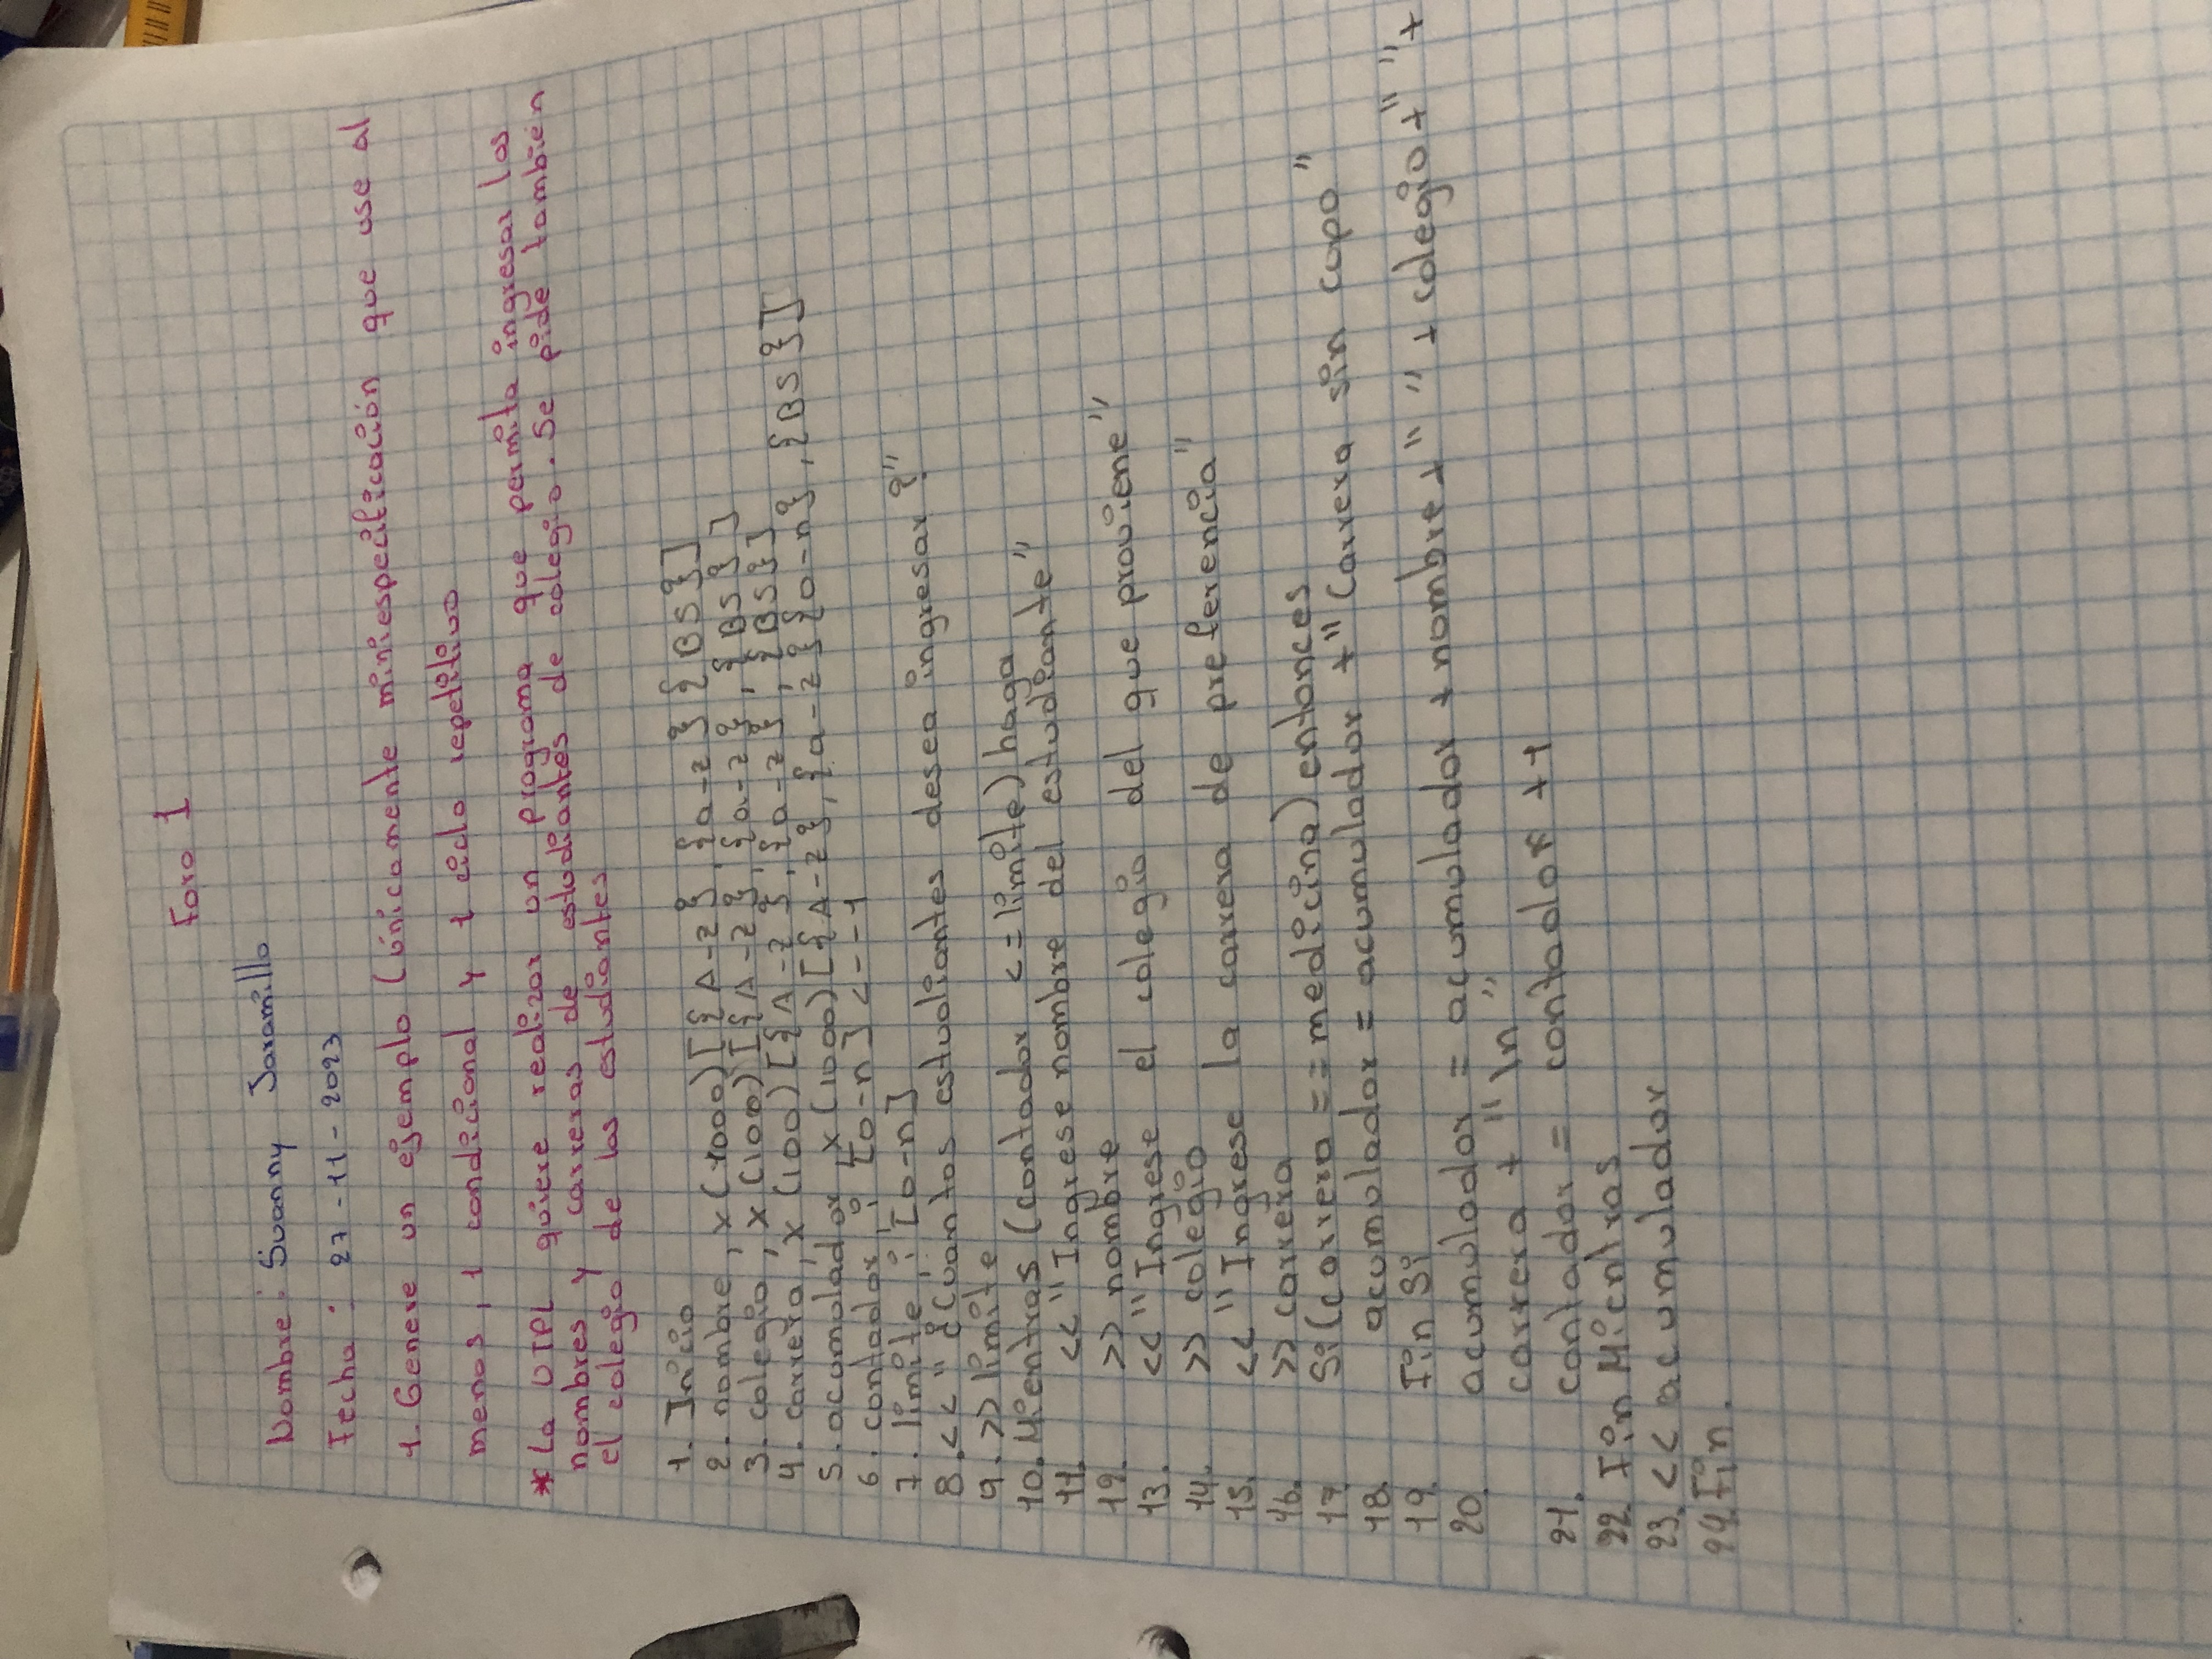 Foro 1
Nombre: Suanny Jaramillo
Fecha: 27-11-2023
1. Genere un ejemplo (únicamente miniespecificación que use al
menos, 1 condicional y 1 ciclo repetitivo
* La UTPL quiere realizar un programa que permita ingresar los
nombres y carreras de estudiantes de colegio. Se pide tambien
el colegio de los estudiantes
1. Inicio
2. nombre, x(1000)[{A-Z},{a-z}{BS}]
3. colegio, x(100)[{A-Z},{a-z},{BS}]
4. carrera, x(100)[{A-Z},{a-z},{BS}]
5. acumulador, x(1000)[{A-Z},{a-z}{0-n},{BS}]
6. contador, i [0-n] <--1
7. limite, i [0-n]
8. << "¿Cuantos estudiantes desea ingresar?"
9. >> limite
10. Mientras (contador <= limite) haga
11. << "Ingrese nombre del estudiante"
12. >> nombre
13. << "Ingrese el colegio del que proviene"
14. >> colegio
15. << "Ingrese la carrera de preferencia"
16. >> carrera
17. Si(carrera == medicina) entonces
18. acumulador = acumulador + "Carrera sin cupo"
19. Fin Si
20. acumulador = acumulador + nombre + " " + colegio + " " +
carrera + "\n"
21. contador = contador +1
22. Fin Mientras
23. << acumulador
24. Fin.